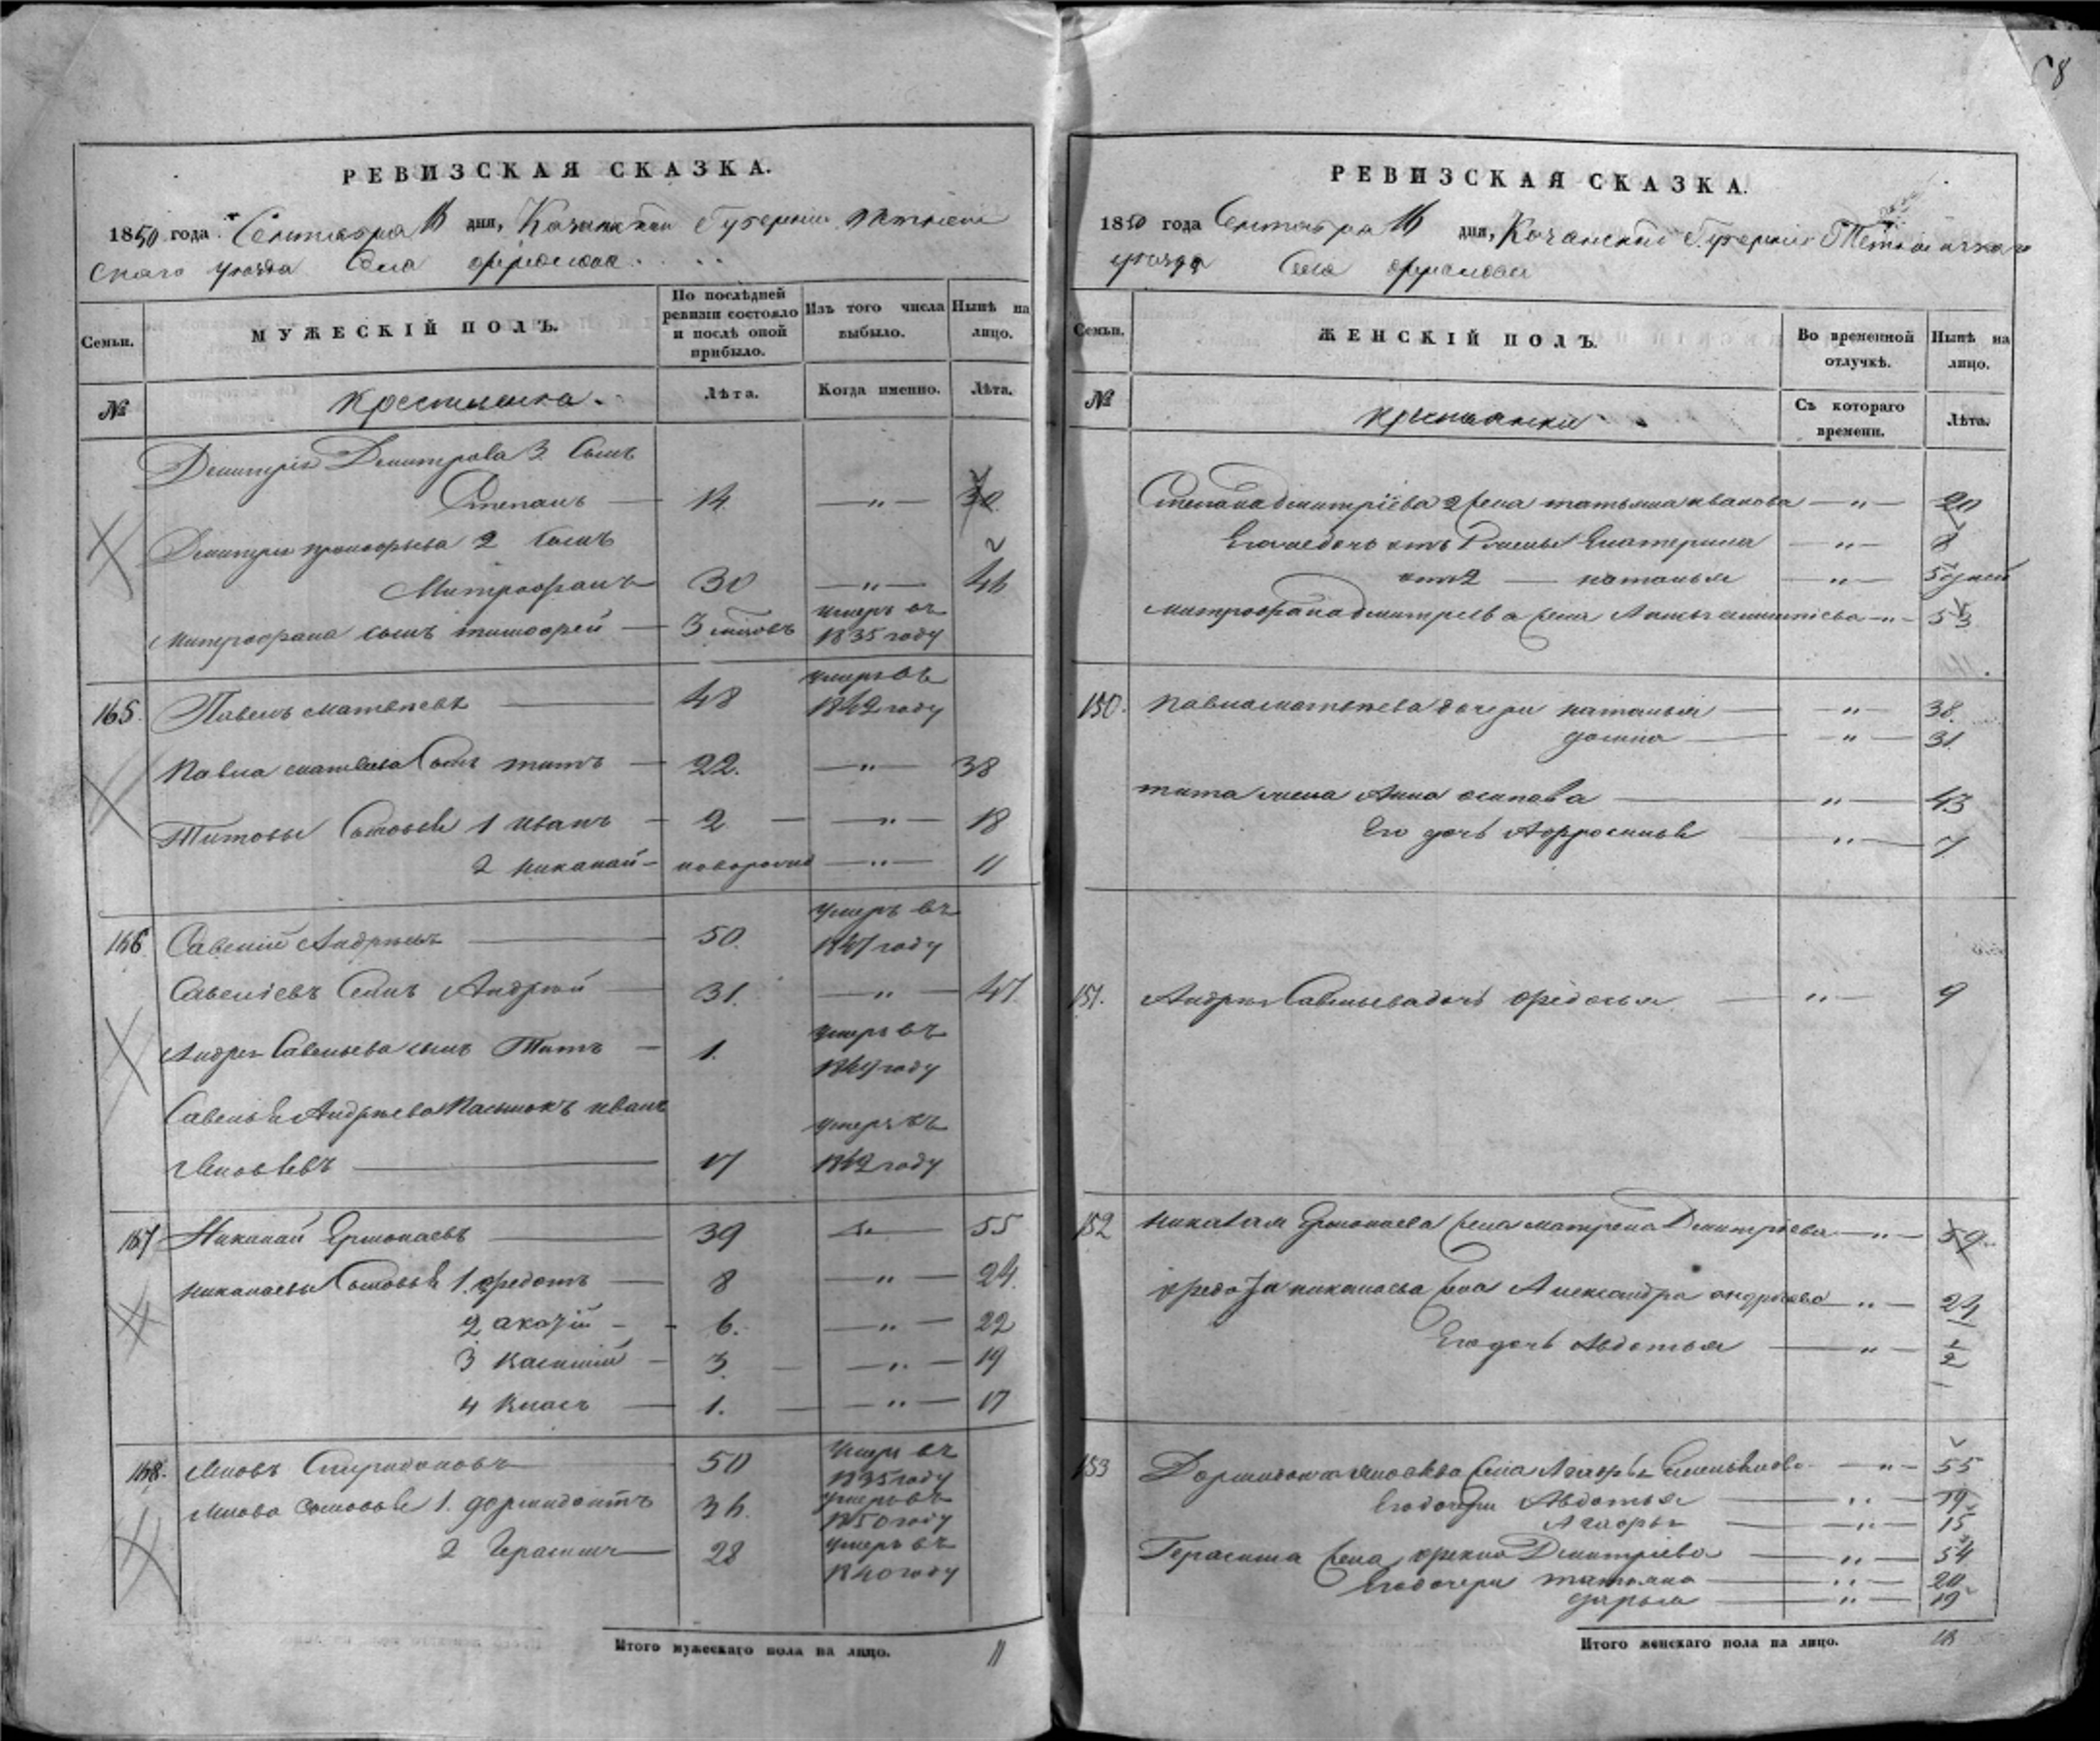 8
РЕВИЗСКАЯ СКАЗКА.
1850 года Сентября 16 дня, Казанской Губерніи
скаго уѣзда Села
Семьи.
МУЖЕСКІЙ ПОЛЪ.
По послѣдней ревизіи состояло и послѣ оной прибыло.
Изъ того числа выбыло.
Нынѣ на лицо.
№
Крестьяна.
Лѣта.
Когда именно.
Лѣта.
Дмитрія Дмитрова 3 сынъ
Степанъ — 14 — " — 30
Дмитрія прокофьева 2 сынъ
Митрофанъ 30 — " — 46
Митрофана сынъ тимофей — 3 умеръ въ 1835 году
165. Павелъ матвѣевъ — 48 умеръ въ 1842 году
Павла матвѣева сынъ титъ — 22. — " — 38
Титовы сыновья 1 иванъ — 2 — " — 18
2 никалай — новорожд — " — 11
166 Савелій Андреевъ — 50. умеръ въ 1847 году
Савеліевъ сынъ Андрей — 31. — " — 47
Андрея Савельева сынъ Титъ — 1. умеръ въ году
Савелья Андреева пасынокъ иванъ
Яковлевъ — 17 умеръ въ 1842 году
167 Никалай Ермолаевъ — 39 — " — 55
никалаевы сыновья 1. федотъ — 8 — " — 24.
2 — 6. — " — 22
3 — 3. — " — 19
4 Власъ — 1. — " — 17
168. Яковъ Спиридоновъ — 50 умеръ въ 1835 году
Якова сыновья 1. дормидонтъ 36. умеръ въ 1850 году
2 Герасимъ — 28 умеръ въ 1840 году
Итого мужескаго пола на лицо. 11
РЕВИЗСКАЯ СКАЗКА.
1850 года Сентября 16 дня, Казанской Губерніи
уѣзда Села
Семьи.
ЖЕНСКІЙ ПОЛЪ.
Во временной отлучкѣ.
Нынѣ на лицо.
№
крестьянки
Съ котораго времени.
Лѣта.
Степана дмитріева жена татьяна иванова — " — 20
Его дочь отъ Екатерина — " —
отъ 2 — наталья — " — дней
митрофана дмитріева жена — " — 53
150. павла матвѣева дочери наталья — " — 38.
домна — " — 31.
тита жена Анна осипова — " — 43
Его дочь Афросинья — " — 7
151. Андрея Савельева дочь федосья — " — 9
152 никалая Ермолаева жена матрена Дмитріева — " — 59
федота никалаева жена Александра андреева — " — 24
Его дочь Авдотья — " — 1/2
153 Дормидонта яковлева жена Агафья Емельянова — " — 55
Его дочери Авдотья — " — 19
Агафья — " — 15
Герасима жена фекла Дмитріева — " — 54
Его дочери татьяна — " — 20
дарья — " — 19
Итого женскаго пола на лицо. 18